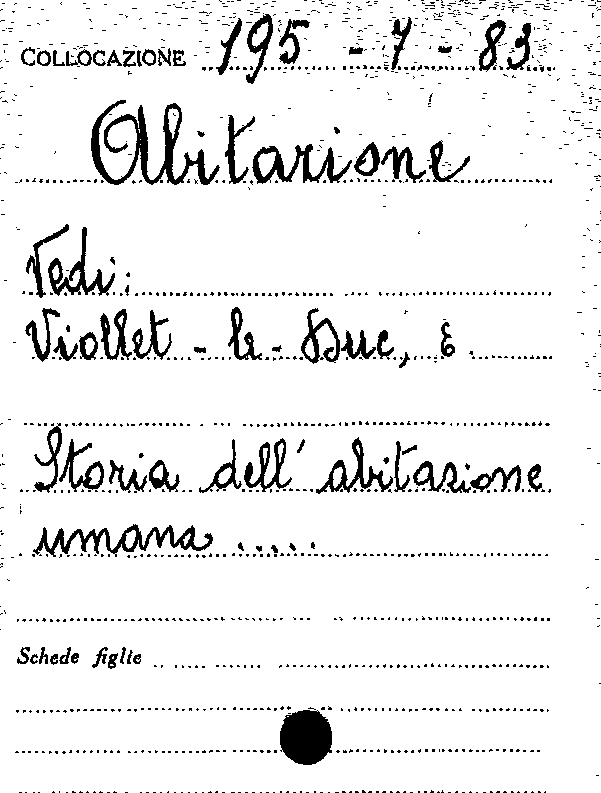 COLLOCAZIONE 195 - 7 - 83
Abitazione
Vedi:
Viollet - le - Duc, E.
Storia dell' abitazione
umana .....
Schede figlie